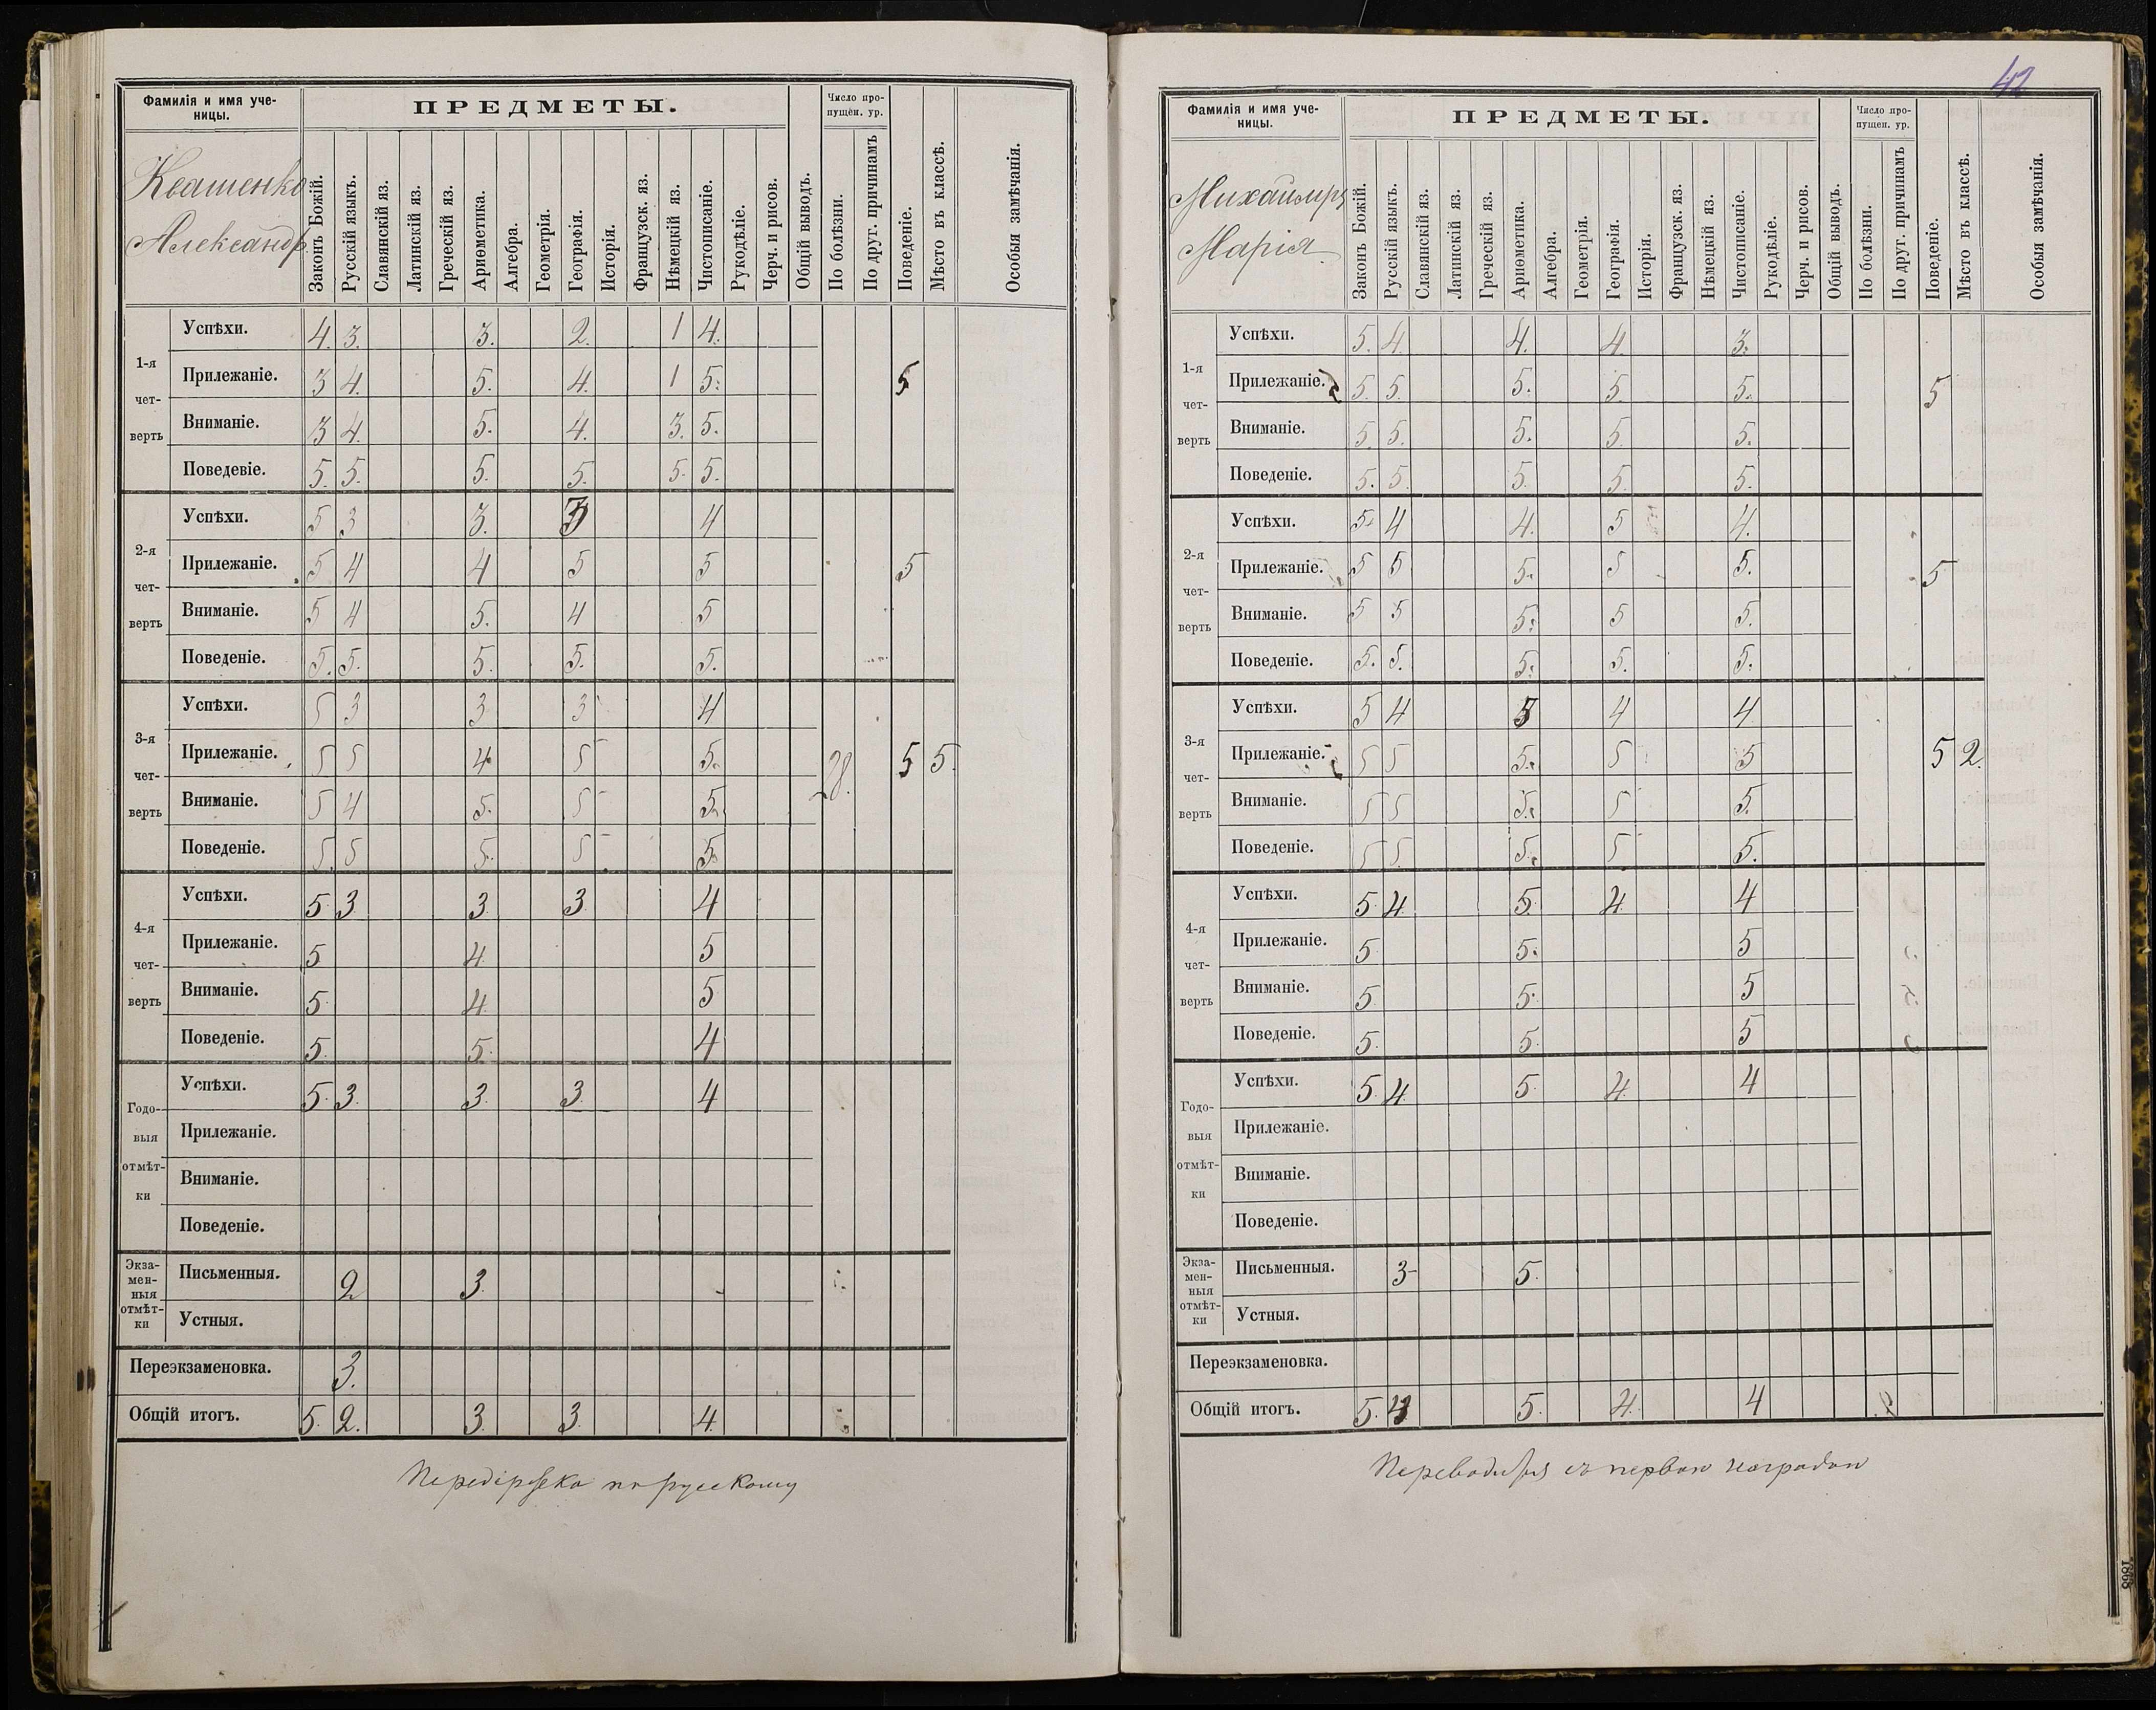 Фамилія и имя уче-
ницы.
ПРЕДМЕТЫ.
Число про-
пущен. ур.
Квашенко
Александр
Законъ Божій.
Русскій языкъ.
Славянскій яз.
Латинскій яз.
Греческій яз.
Ариѳметика.
Алгебра.
Геометрія.
Географія.
Исторія.
Французск. яз.
Нѣмецкій яз.
Чистописаніе.
Рукодѣліе.
Черч. и рисов.
Общій выводъ.
По болѣзни.
По друг. причинамъ
Поведеніе.
Мѣсто въ классѣ.
Особыя замѣчанія.
1-я
чет-
верть
Успѣхи. 4. 3. 3. 2. 1 4.
Прилежаніе. 3 4. 5. 4. 1 5. 5
Вниманіе. 3 4. 5. 4. 3. 5.
Поведевіе. 5. 5. 5. 5. 5. 5.
2-я
чет-
верть
Успѣхи. 5 3 3. 3 4
Прилежаніе. 5 4 4 5 5 5
Вниманіе. 5 4 5. 4 5
Поведеніе. 5. 5. 5. 5. 5.
3-я
чет-
верть
Успѣхи. 5 3 3 3 4
Прилежаніе. 5 5 4 5 5. 28. 5 5.
Вниманіе. 5 4 5. 5 5.
Поведеніе. 5. 5 5. 5 5.
4-я
чет-
верть
Успѣхи. 5. 3. 3. 3. 4
Прилежаніе. 5 4. 5
Вниманіе. 5. 4. 5
Поведеніе. 5. 5. 4
Годо-
выя
отмѣт-
ки
Успѣхи. 5. 3. 3. 3. 4
Прилежаніе.
Вниманіе.
Поведеніе.
Экза-
мен-
ныя
отмѣт-
ки
Письменныя. 2 3.
Устныя.
Переэкзаменовка. 3.
Общій итогъ. 5. 2. 3. 3. 4.
по русскому
42
Фамилія и имя уче-
ницы.
ПРЕДМЕТЫ.
Число про-
пущен. ур.
Марія
Законъ Божій.
Русскій языкъ.
Славянскій яз.
Латинскій яз.
Греческій яз.
Ариѳметика.
Алгебра.
Геометрія.
Географія.
Исторія.
Французск. яз.
Нѣмецкій яз.
Чистописаніе.
Рукодѣліе.
Черч. и рисов.
Общій выводъ.
По болѣзни.
По друг. причинамъ
Поведеніе.
Мѣсто въ классѣ.
Особыя замѣчанія.
1-я
чет-
верть
Успѣхи. 5. 4. 4. 4. 3.
Прилежаніе. 5. 5. 5. 5. 5. 5
Вниманіе. 5. 5. 5. 5. 5.
Поведеніе. 5. 5. 5. 5. 5.
2-я
чет-
верть
Успѣхи. 5. 4 4. 5 4.
Прилежаніе. 5 5 5. 5 5. 5
Вниманіе. 5 5 5. 5 5.
Поведеніе. 5. 5. 5. 5. 5.
3-я
чет-
верть
Успѣхи. 5 4 5 4 4
Прилежаніе. 5 5 5. 5 5 5 2.
Вниманіе. 5 5 5. 5 5.
Поведеніе. 5 5. 5. 5 5.
4-я
чет-
верть
Успѣхи. 5. 4. 5. 4. 4
Прилежаніе. 5. 5. 5
Вниманіе. 5. 5. 5
Поведеніе. 5. 5. 5
Годо-
выя
отмѣт-
ки
Успѣхи. 5. 4. 5. 4. 4
Прилежаніе.
Вниманіе.
Поведеніе.
Экза-
мен-
ныя
отмѣт-
ки
Письменныя. 3- 5.
Устныя.
Переэкзаменовка.
Общій итогъ. 5. 5. 4. 4
Переводится съ первою наградою